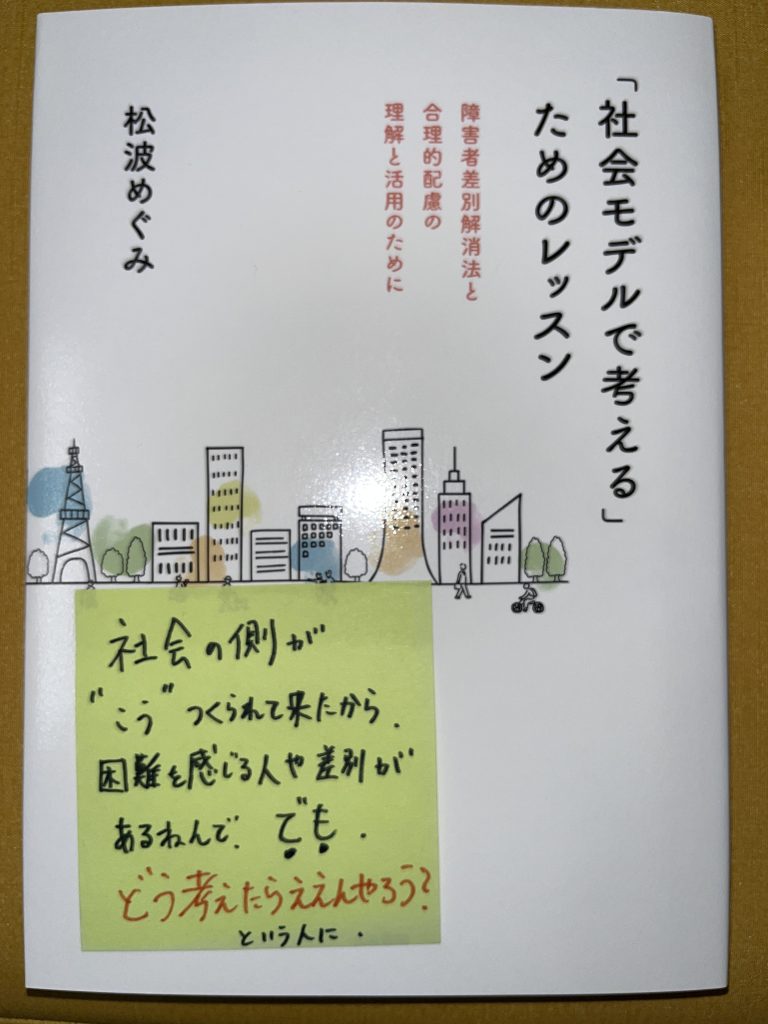 「社会モデルで考える」
ためのレッスン
障害者差別解消法と
合理的配慮の
理解と活用のために
松波めぐみ
社会の側が
"こう"つくられて来たから、
困難を感じる人や差別が
あるねんで。でも、
どう考えたらええんやろう?
という人に。